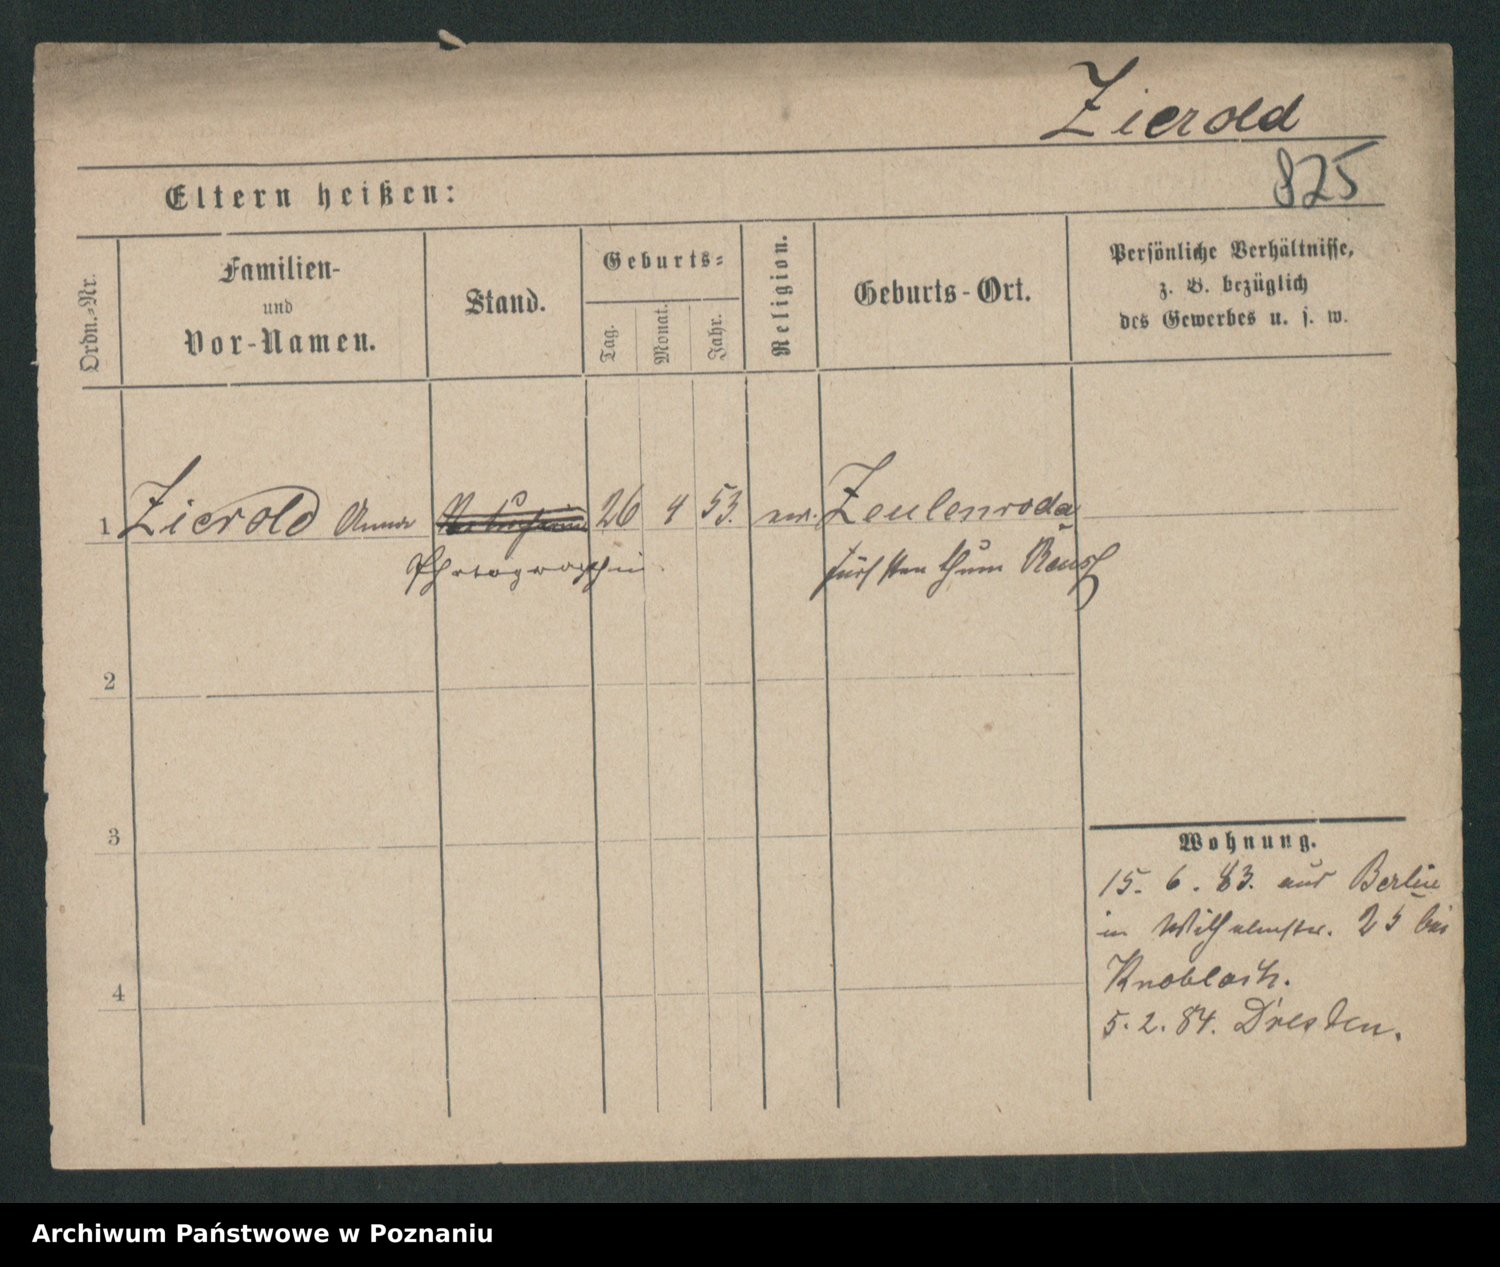 Zierold
825
Eltern heißen:
Ordn.-Nr.
Familien-
und
Vor-Namen.
Stand.
Geburts-
Tag.
Monat.
Jahr.
Religion.
Geburts-Ort.
Persönliche Verhältnisse,
z. B. bezüglich
des Gewerbes u. s. w.
1 Zierold Anna 26 4 53. ev. Zeulenroda
Photographin Fürstenthum Reuß
2
3
4
Wohnung.
15. 6. 83. aus Berlin
in Wilhelmstr. 25 bei
Knobloch.
5. 2. 84. Dresden.
Archiwum Państwowe w Poznaniu